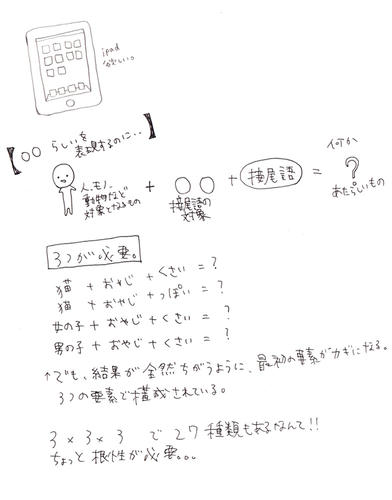 ipad
欲しい。
【〇〇 らしいを
表現するのに‥】
人、モノ、
動物など
対象となるもの
+ 〇〇 + 接尾語 =
接尾語の
対象
何か
?
あたらしいもの
3つが必要。
猫 + おやじ + くさい = ?
猫 + おやじ + っぽい = ?
女の子 + おやじ + くさい = ?
男の子 + おやじ + くさい = ?
↑でも、結果が全然ちがうように、最初の要素がカギになる。
3つの要素で構成されている。
3 × 3 × 3 で 27 種類もあるなんて!!
ちょっと根性が必要。。。